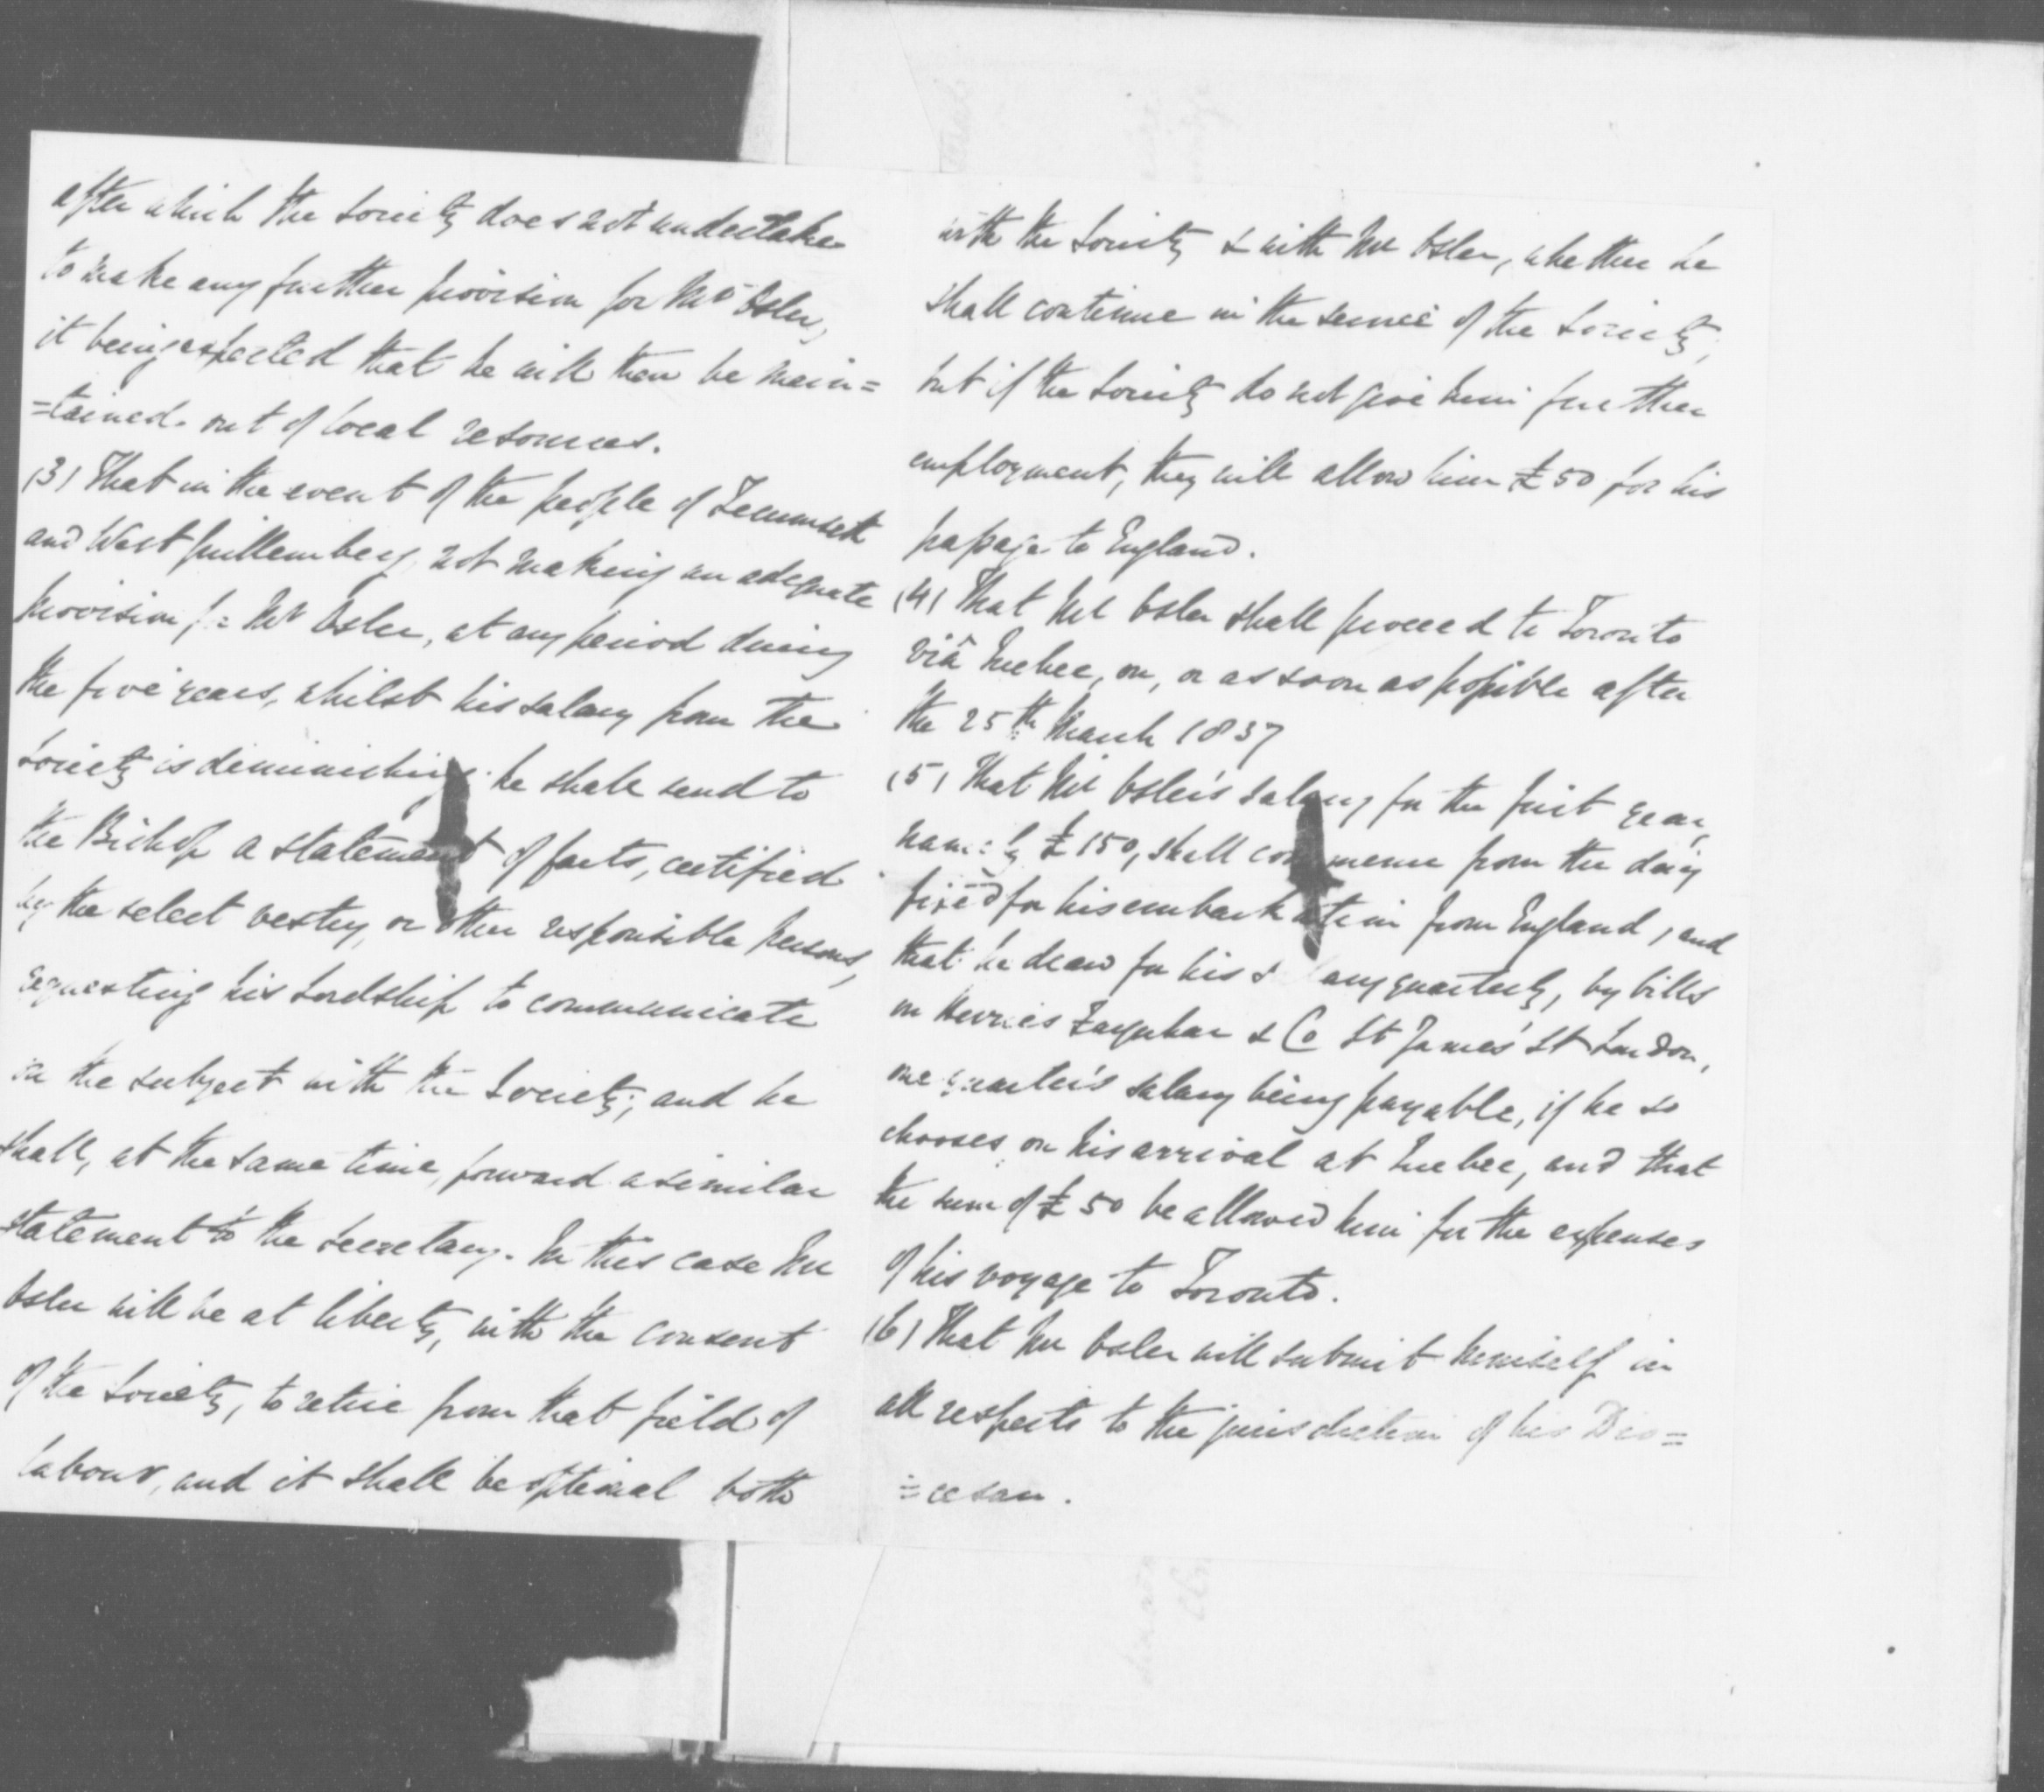 after which the Society does not undertake
to make any further provision for Mr Osler,
it being expected that he will then be main=
=tained out of local resources.
(3) That in the event of the people of Tecumseth
and West Guillembury, not making an adequate
provision for Mr Osler, at any period during
the five years, whilst his salary from the
Society is diminishing he shall send to
the Bishop a statement of facts, certified
by the select vestry, or other responsible persons,
requesting his Lordship to communicate
on the subject with the Society; and he
shall, at the same time, forward a similar
statement to the Secretary. In this case Mr
Osler will be at liberty, with the consent
of the Society, to retire from that field of
labour, and it shall be optional both
with the Society & with Mr Osler, whether he
shall continue in the service of the Society;
but if the Society do not give him further
employment, they will allow him £50 for his
passage to England.
(4) That Mr Osler shall proceed to Toronto
viâ Quebec, on, or as soon as possible after
the 25th March 1837
(5) That Mr Osler's salary for the first year,
namely £150, shall commence from the day
fixed for his embarkation from England, and
that he draw for his salary quarterly, by bills
on Herries Farquhar & Co St James' St London,
one quarter's salary being payable, if he so
chooses, on his arrival at Quebec, and that
the sum of £50 be allowed him for the expenses
of his voyage to Toronto.
(6) That Mr Osler will submit himself in
all respects to the jurisdiction of his Dio=
=cesan.